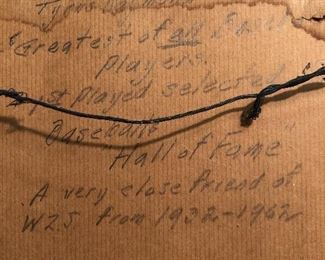 "Greatest of all
Players.
1st Played selected
Baseball's
"Hall of Fame"
A very close friend of
WZJ from 1932-1962